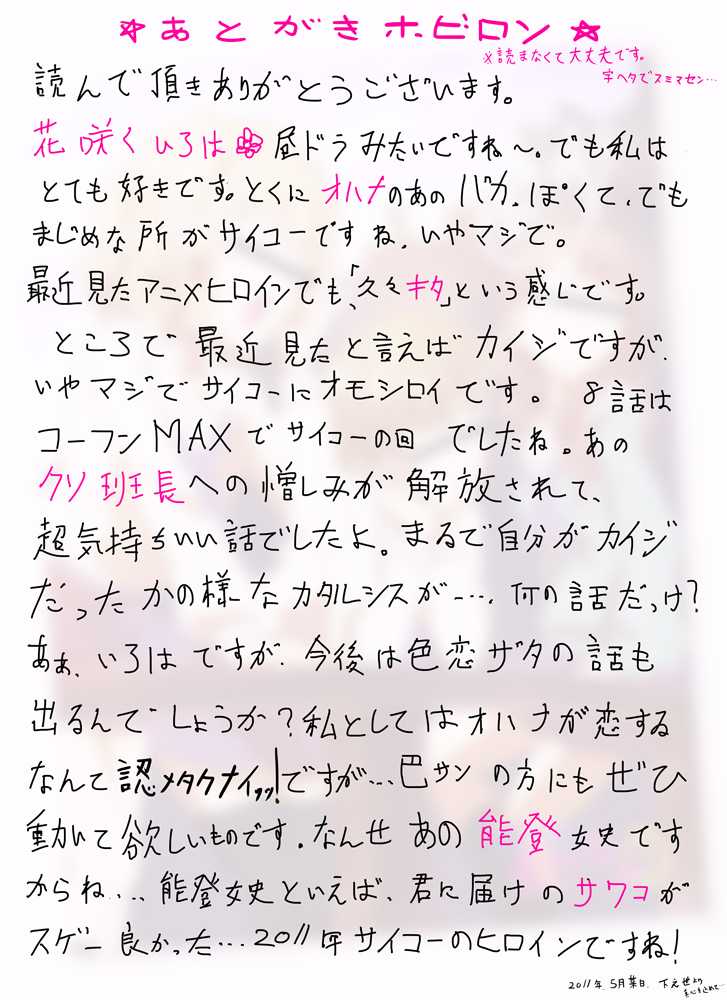 ☆あとがきホビロン☆
※読まなくて大丈夫です。
字ヘタでスミマセン…
読んで頂きありがとうございます。
花咲くいろは 昼ドラみたいですね〜。でも私は
とても好きです。とくにオハナのあのバカっぽくて、でも
まじめな所がサイコーですね、いやマジで。
最近見たアニメヒロインでも、「久々キタ」という感じです。
ところで最近見たと言えばカイジですが、
いやマジでサイコーにオモシロイです。8話は
コーフンMAXでサイコーの回でしたね。あの
クソ班長への憎しみが解放されて、
超気持ちいい話でしたよ。まるで自分がカイジ
だったかの様なカタルシスが…、何の話だっけ?
あぁ、いろはですが、今後は色恋ザタの話も
出るんでしょうか?私としてはオハナが恋する
なんて認メタクナイッッ!ですが…巴サンの方にもぜひ
動いて欲しいものです。なんせあの能登女史です
からね…、能登女史といえば、君に届けのサワコが
スゲー良かった…2011年サイコーのヒロインですね!
2011年5月某日、